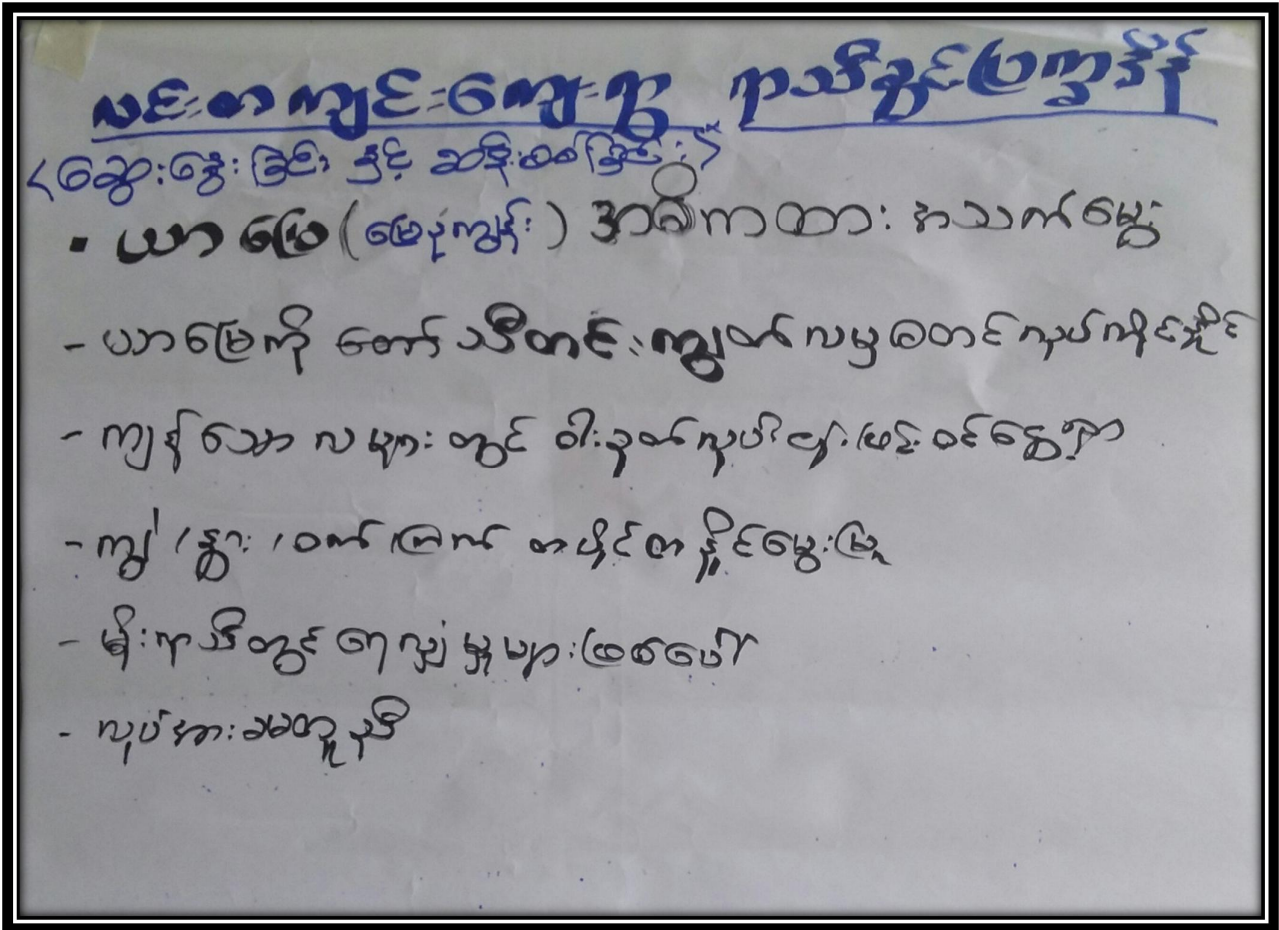 လင်းတကျင်းကျေးရွာ ရာသီခွင်ပြက္ခဒိန်
<ဆွေးနွေးခြင်း နှင့် ဆန်းစစ်ခြင်း>
▪ ယာမြေ (မြေနုကျွန်း) အဓိကထား အသက်မွေး
- ယာမြေကို တော်သီတင်းကျွတ်လမှစတင်လုပ်ကိုင်နိုင်
- ကျန်သောလများတွင် ဝါးခုတ်လုပ်ငန်းဖြင့်ဝင်ငွေရှာ
- ကျွဲ၊နွား၊ဝက်၊ကြက် တပိုင်တနိုင်မွေးမြူ
- မိုးရာသီတွင်ရေလျှံမှုများဖြစ်ပေါ်
- လုပ်အားခမတူညီ